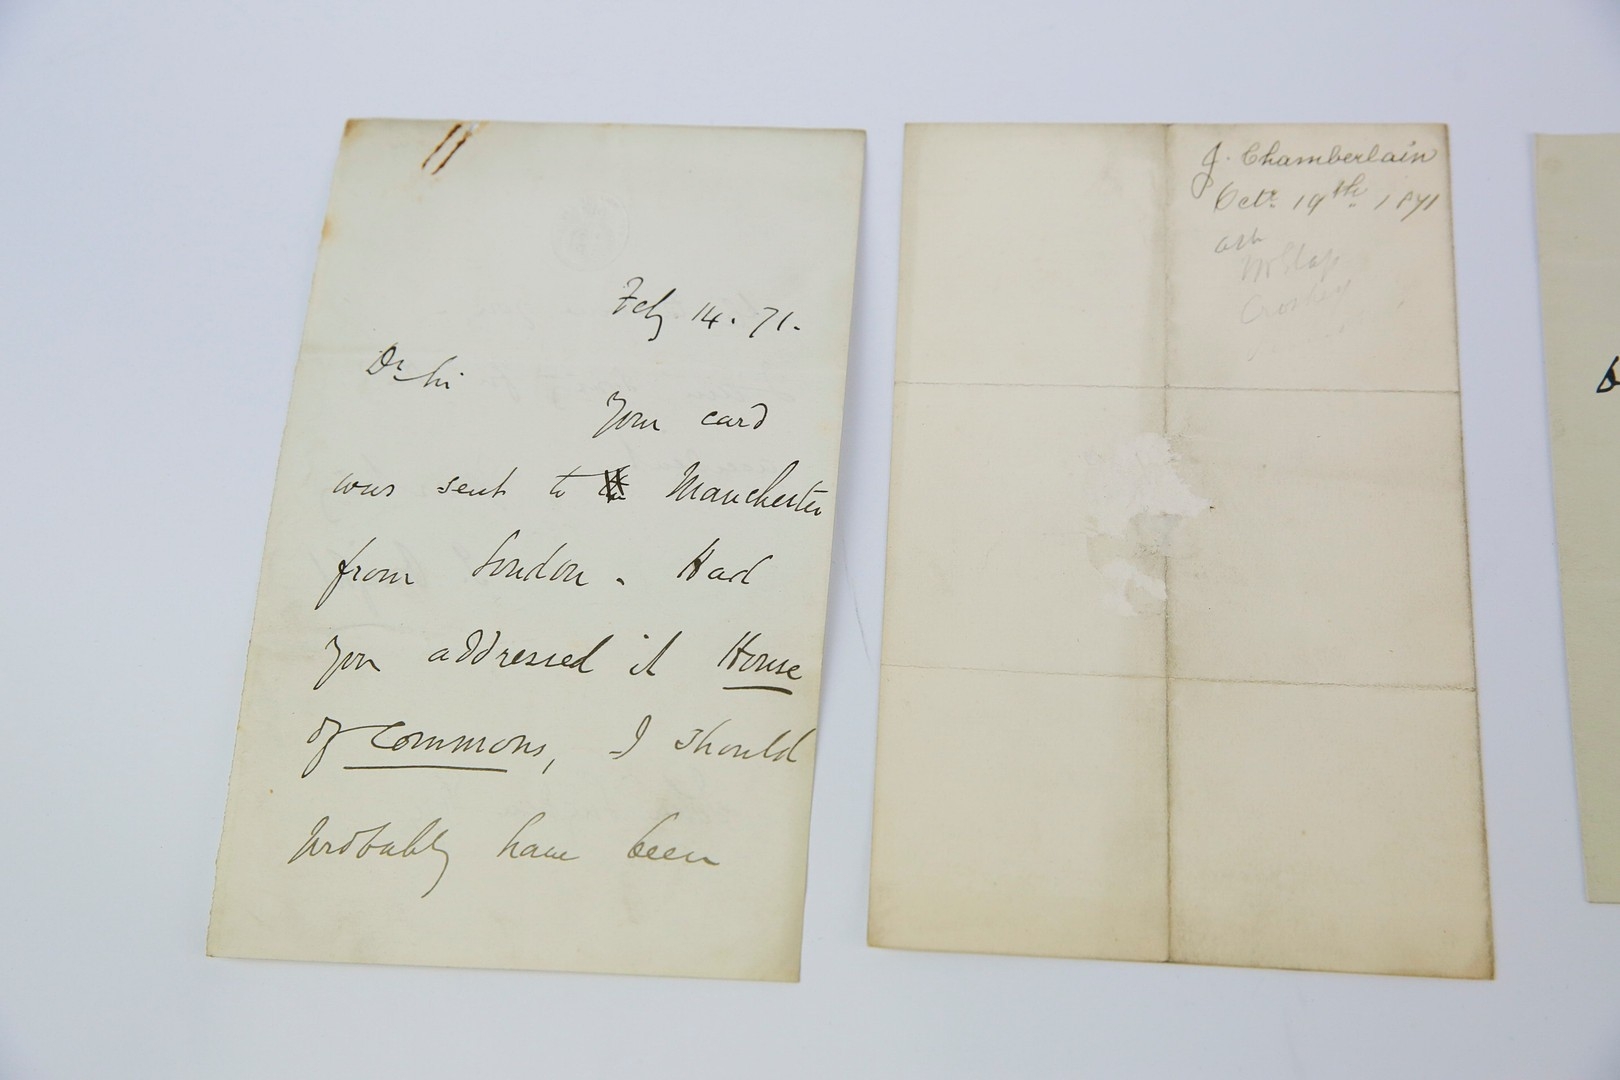 Feby 14. 71.
Dr Sir
Your card
was sent to Manchester
from London. Had
you addressed it House
of Commons, I should
probably have been
J. Chamberlain
Octr. 19th. 1871
Crosby